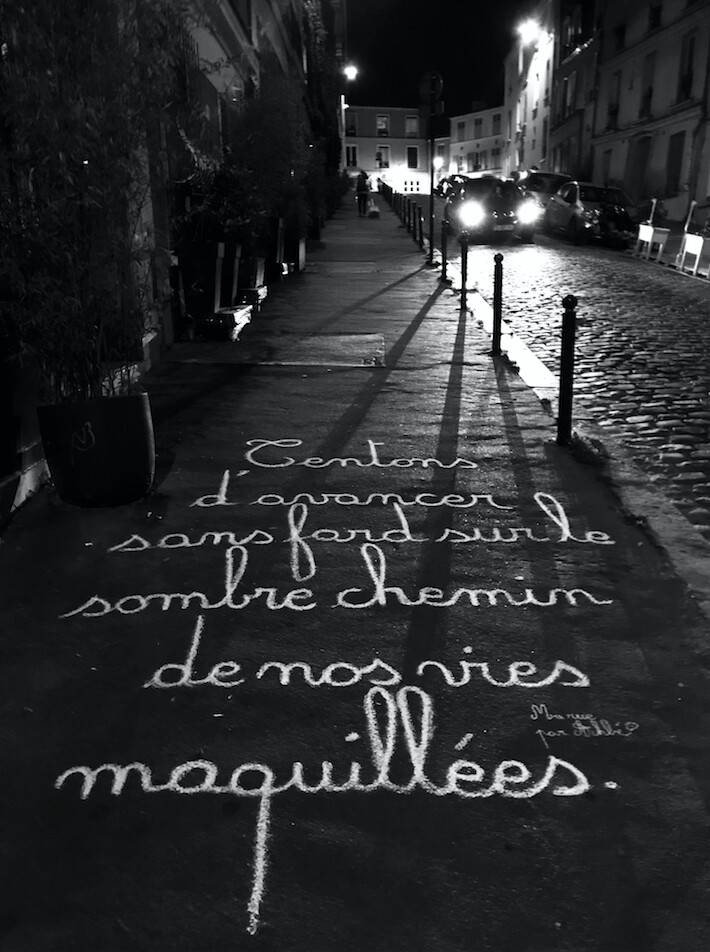 Tentons
d'avancer
sans fard sur le
sombre chemin
de nos vies
maquillées.
Ma rue
par Achbé